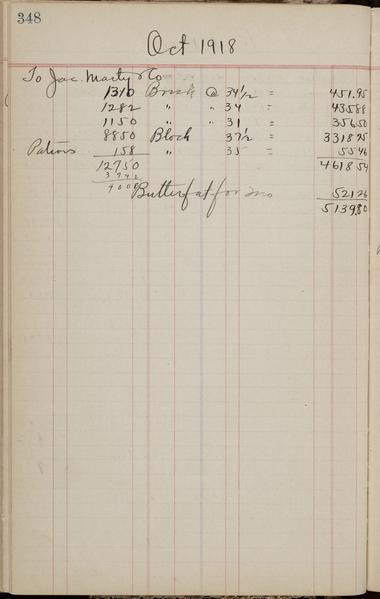 348
Oct 1918
To Jac. Marty & Co
1310 Brick @ 34 1/2 = 451.95
1282 " " 34 " 435 88
1150 " " 31 = 356 50
8850 Block 37 1/2 = 3318 75
Patrons 158 " 35 = 55 46
12750 4618 54
3742
9008 Butterfat for mo 521 26
5139 80